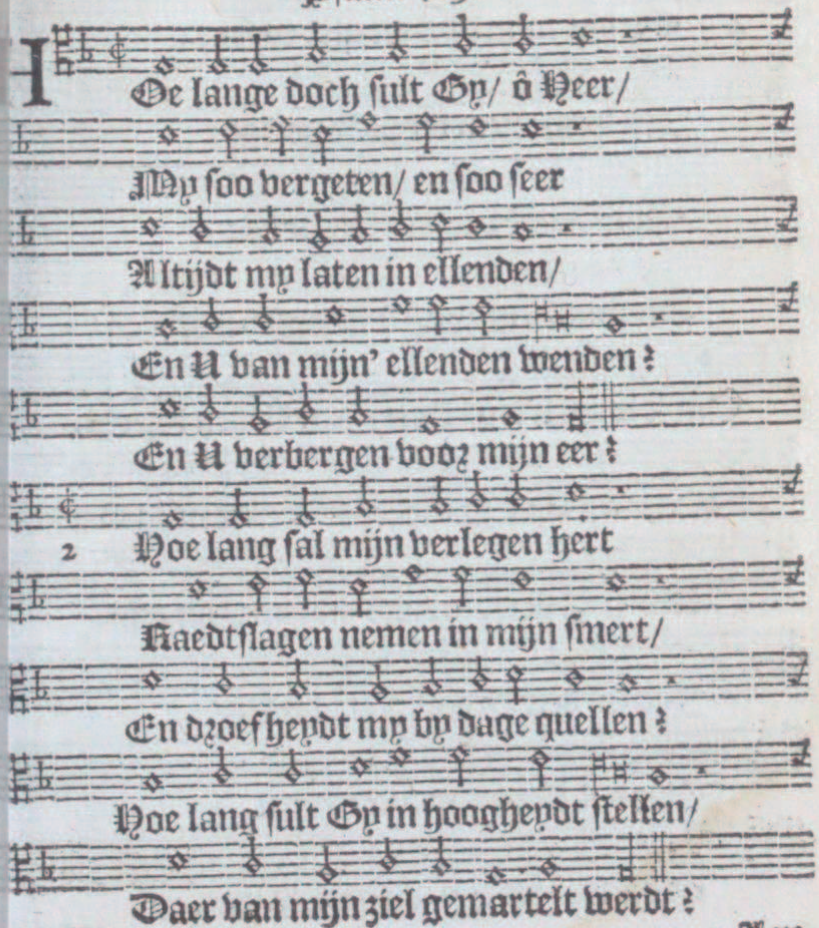 HOe lange doch sult Gy/ ô Heer/
My soo vergeten/ en soo seer
Altijdt my laten in ellenden/
En U van mijn' ellenden wenden?
En U verbergen voor mijn eer?
2 Hoe lang sal mijn verlegen hert
Raedtslagen nemen in mijn smert/
En droefheydt my by dage quellen?
Hoe lang sult Gy in hoogheydt stellen/
Daer van mijn ziel gemartelt werdt?